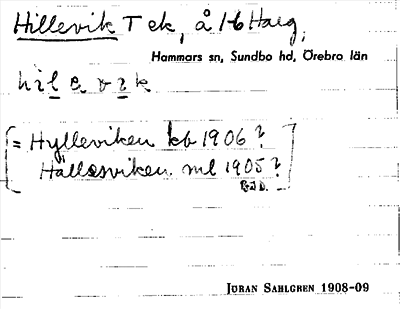 Hillevik T ek, å 1-6 Haeg,
Hammars sn, Sundbo hd, Örebro län
hilevik
[= Hylleviken kb 1906?
Hällesviken ml 1905?]
JÖRAN SAHLGREN 1908-09